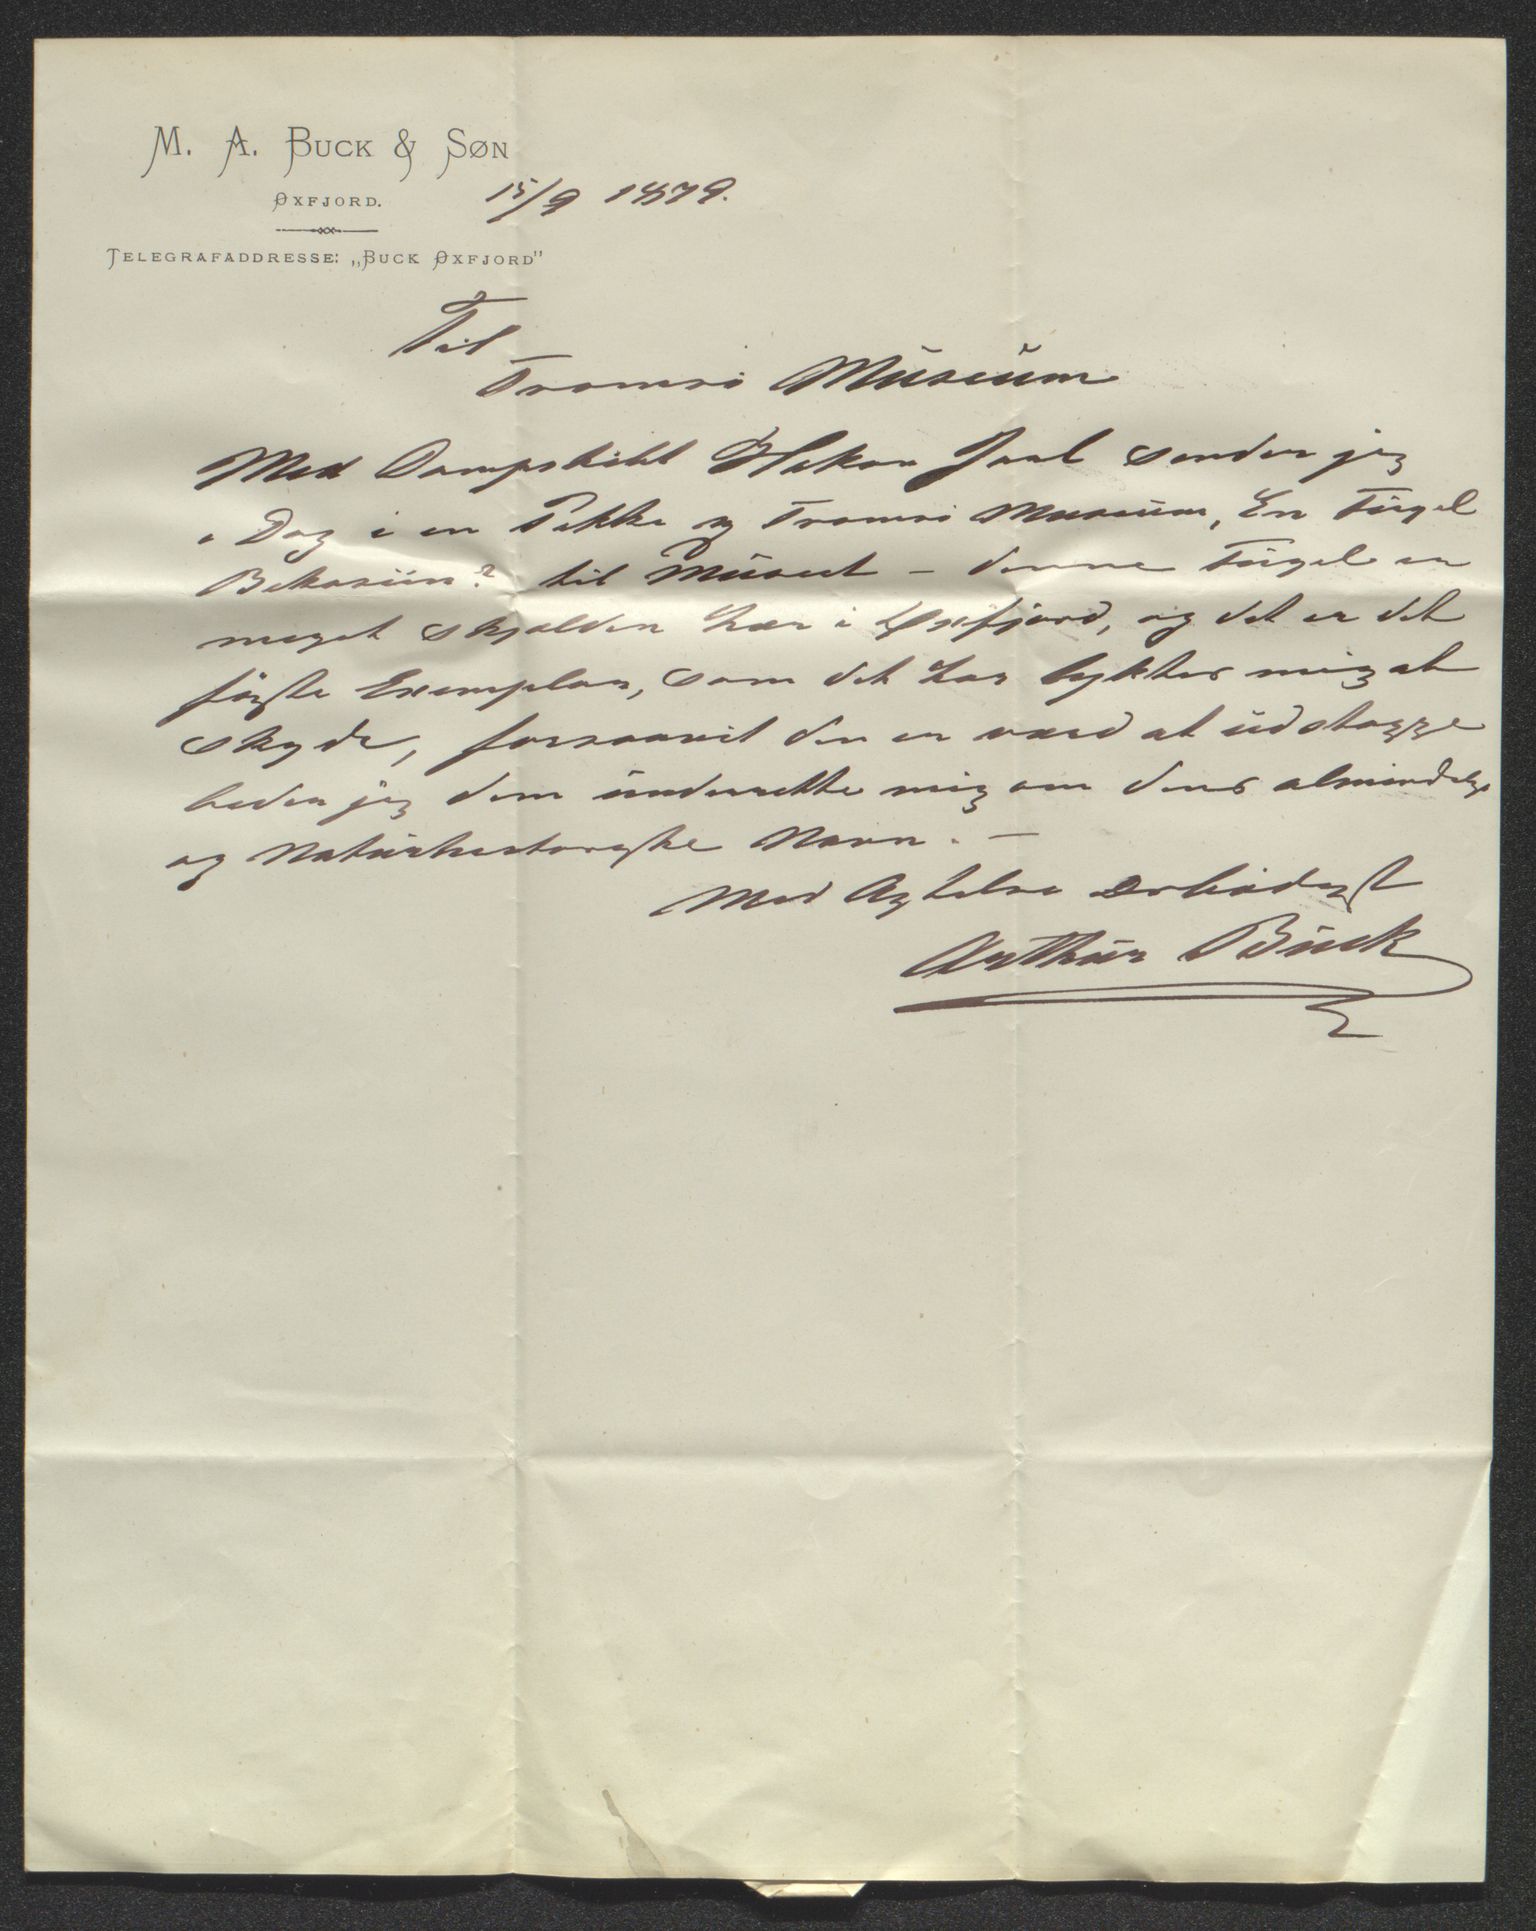 M. A. BUCK & SØN
ØXFJORD. 15/9 1879.
TELEGRAFADDRESSE: „BUCK ØXFJORD"
Til
Tromsö Museum
Med Dampskibet Hakon Jarl sender jeg
i Dag i en Pakke Tromsö Museum, En Fugel
Bekasiin? til Museet – denne Fugel er
meget skjelden hær i Øxfjord, og det er det
förste Exemplar, som det har lyktes mig at
skyde, forsaavit den er værd at udstoppe
beder jeg dem underrette mig om dens almindelige
og Naturhistoriske Navn. –
Med Agtelse Erbödigst
Arthur Buck